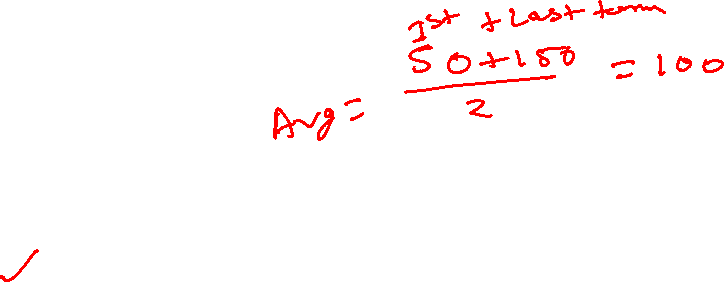 1st + Last term
Avg = 50+150 / 2 = 100